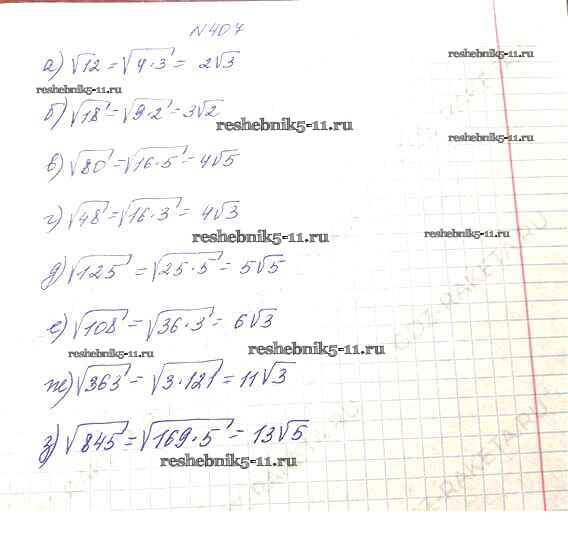 N 407
а) √12 = √4·3 = 2√3
reshebnik5-11.ru
reshebnik5-11.ru
б) √18 = √9·2 = 3√2
reshebnik5-11.ru
reshebnik5-11.ru
в) √80 = √16·5 = 4√5
г) √48 = √16·3 = 4√3
reshebnik5-11.ru
reshebnik5-11.ru
д) √125 = √25·5 = 5√5
е) √108 = √36·3 = 6√3
reshebnik5-11.ru
reshebnik5-11.ru
ж) √363 = √3·121 = 11√3
з) √845 = √169·5 = 13√5
reshebnik5-11.ru